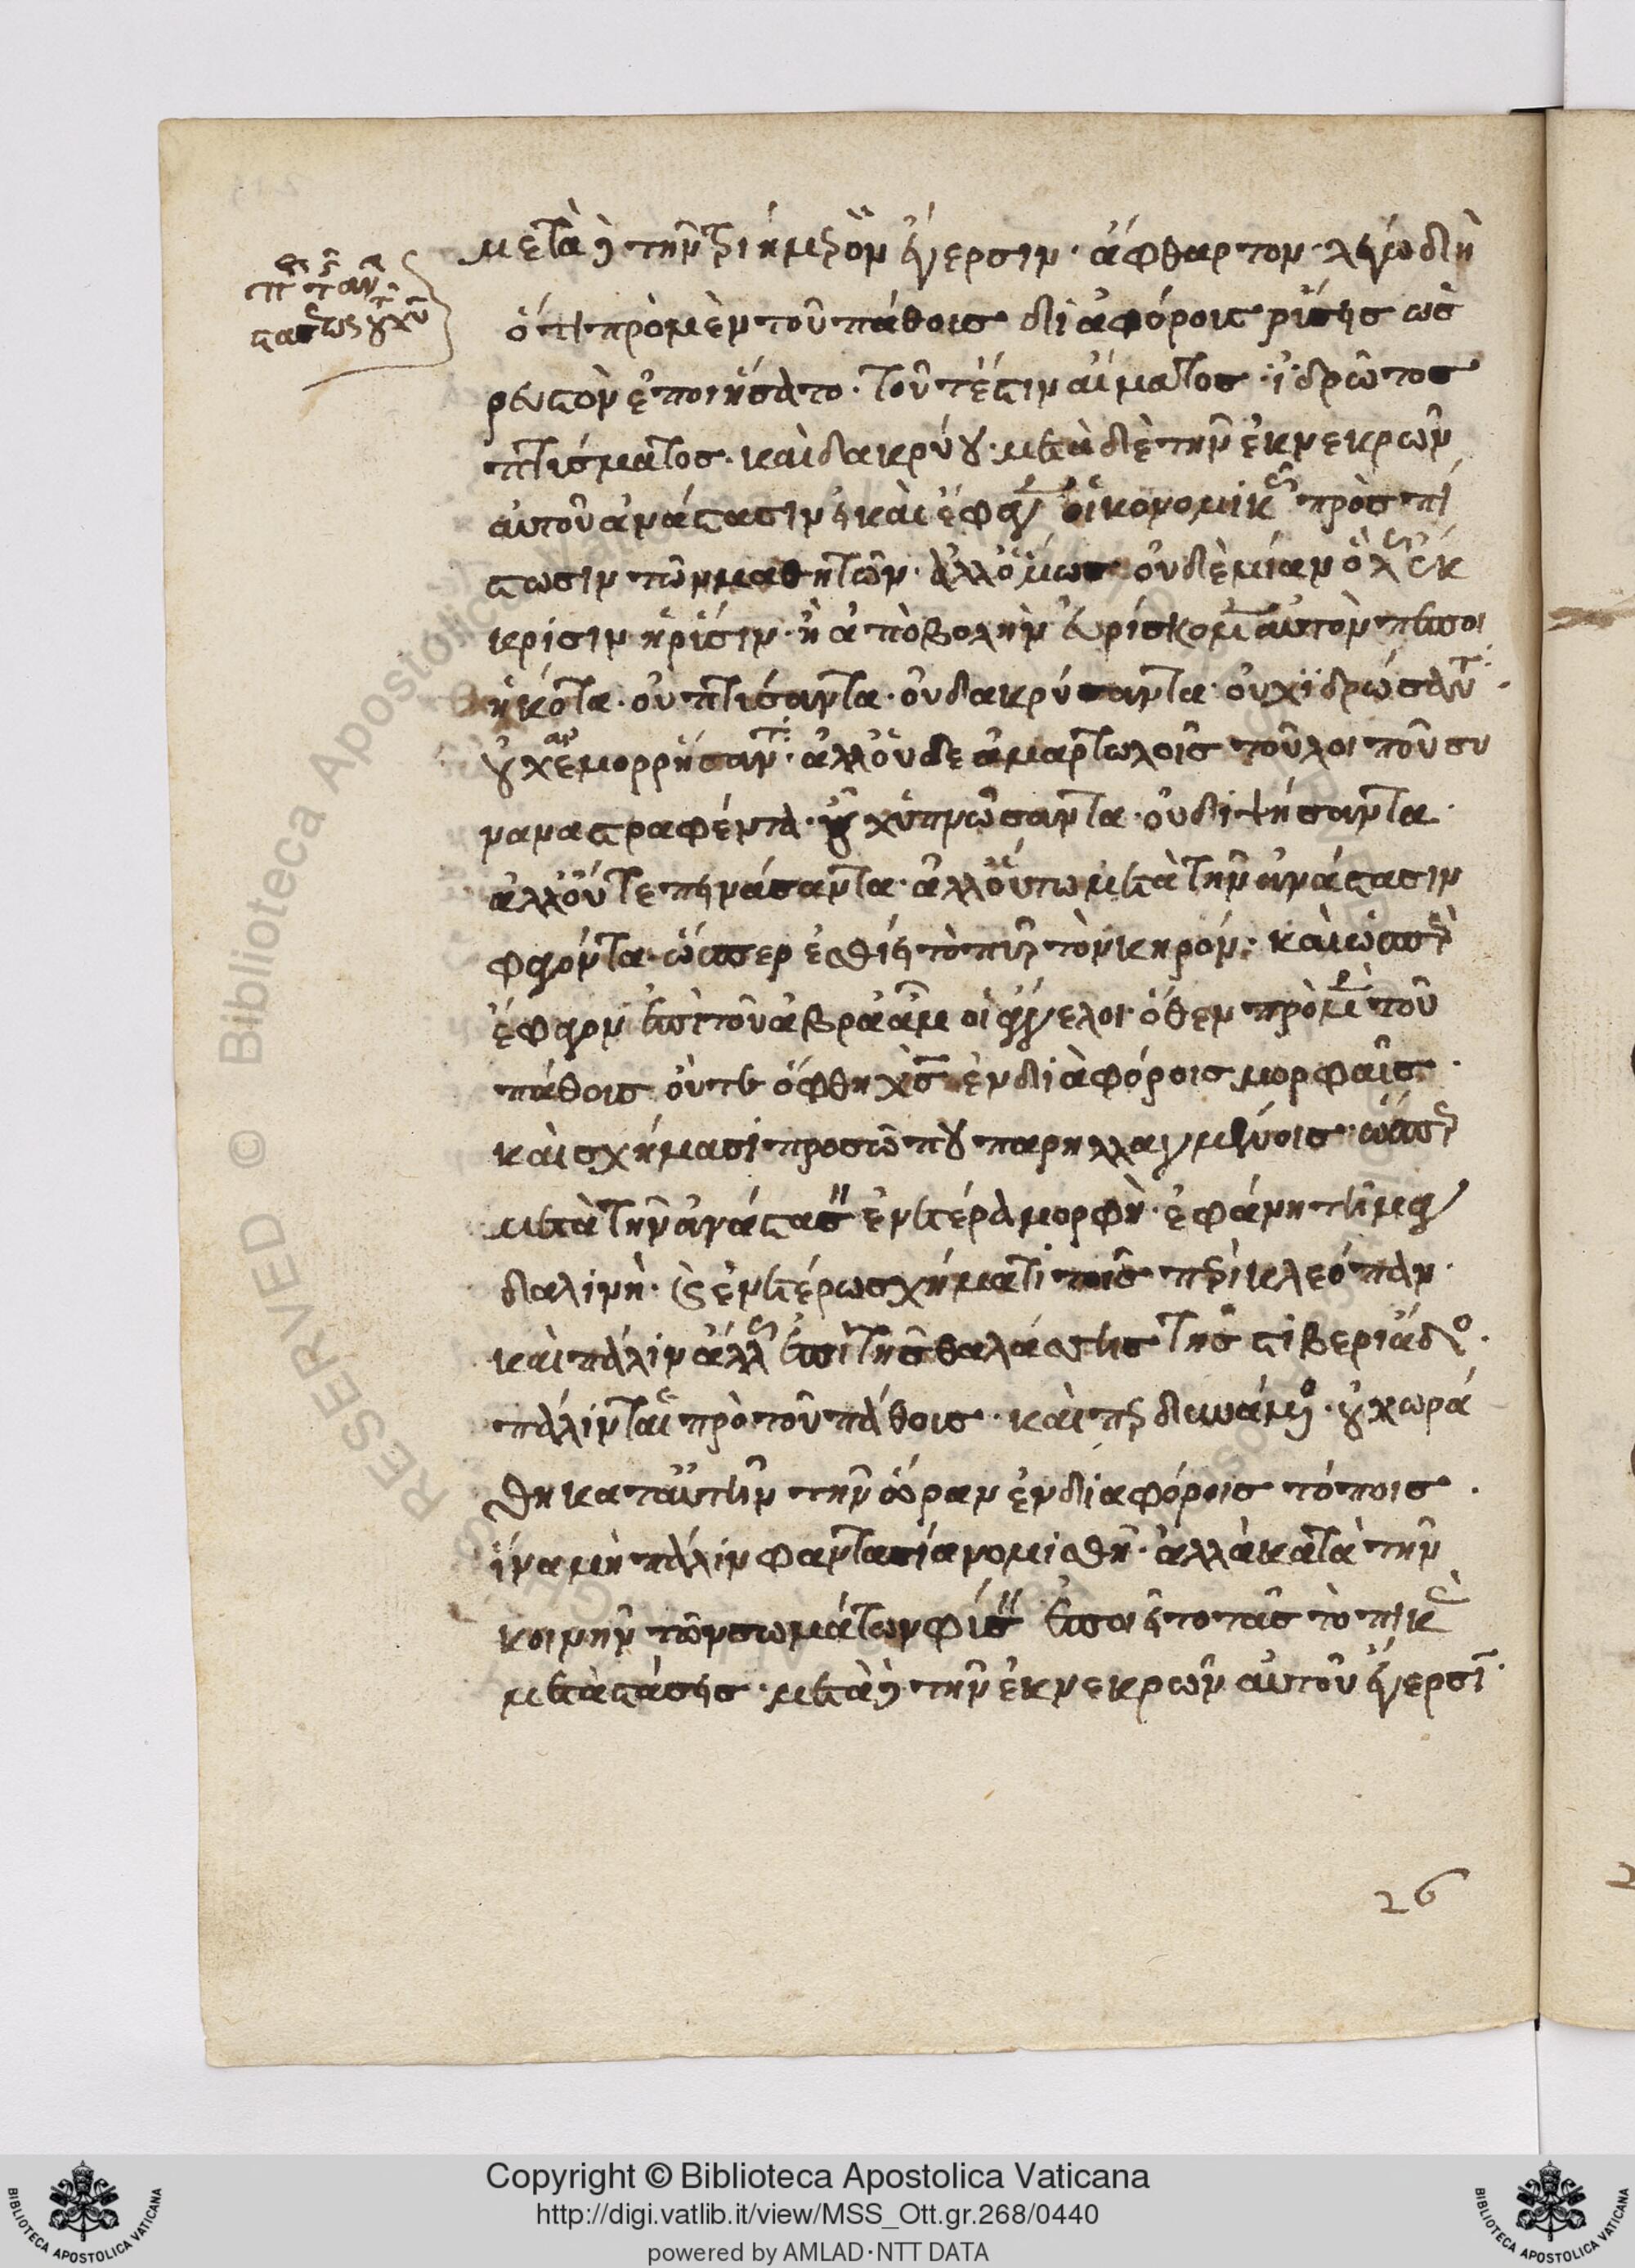 μετὰ δὲ τὴν τριήμερον ἔγερσιν· ἄφθαρτον· λέγω δὴ
ὅτι πρὸ μὲν τοῦ πάθους διαφόροις ῥύσεις ὡς
ρευστὸν ἐποιήσατο· τουτέστιν αἵματος· ἱδρῶτος
πτύσματος· καὶ δακρύου· μετὰ δὲ τὴν ἐκ νεκρῶν
αὐτοῦ ἀνάστασιν εἰ καὶ ἔφαγεν οἰκονομικῶς πρὸς πί
στωσιν τῶν μαθητῶν· ἀλλ' ὅμως οὐδὲ μίαν ὅλως ἔκ
κρισιν ἢ ῥύσιν· ἢ ἀποβολὴν εὑρίσκομεν αὐτὸν πεποι
ηκότα· οὐ πτύσαντα· οὐ δακρύσαντα· οὐχ ἱδρώσαντα·
οὐχ αἱμορροήσαντα· ἀλλ' οὐδὲ ἁμαρτωλοῖς τοῦ λοιποῦ συ
ναναστραφέντα· οὐχ ὑπνώσαντα· οὐ διψήσαντα·
ἀλλ' οὔτε πεινάσαντα· ἀλλ' οὕτω μετὰ τὴν ἀνάστασιν
φαγόντα· ὥσπερ ἐσθίει τὸ πῦρ τὸν κηρόν· καὶ ὥσπερ
ἔφαγον ἐπὶ τοῦ ἀβραὰμ οἱ ἄγγελοι· ὅθεν πρὸ μὲν τοῦ
πάθους οὔτε ὤφθη χς ἐν διαφόροις μορφαῖς·
καὶ σχήμασι προσώπου παρηλλαγμένοις· ὥσπερ
μετὰ τὴν ἀνάστασιν ἐν ἑτέρα μορφὴ· ἐφάνη τῆ μαγ
δαλινὴ· καὶ ἐν ἑτέρω σχήματι τοῖς περὶ κλεόπαν·
καὶ πάλιν ἄλλως ἐπὶ τῆς θαλάσσης τῆς τιβεριάδος·
πάλιν πρὸ τοῦ πάθους· καὶ δυνάμενος· οὐχ ὡρά
θη κατ' αὐτὴν τὴν ὥραν ἐν διαφόροις τόποις·
ἵνα μὴ πάλιν φαντασία νομισθῆ· ἀλλὰ κατὰ τὴν
κοινὴν τῶν σωμάτων φύσιν ἐποιεῖτο τὰς τοπικὰς
μεταστάσεις· μετὰ δὲ τὴν ἐκ νεκρῶν αὐτοῦ ἔγερσιν·
26
Copyright © Biblioteca Apostolica Vaticana
http://digi.vatlib.it/view/MSS_Ott.gr.268/0440
powered by AMLAD·NTT DATA